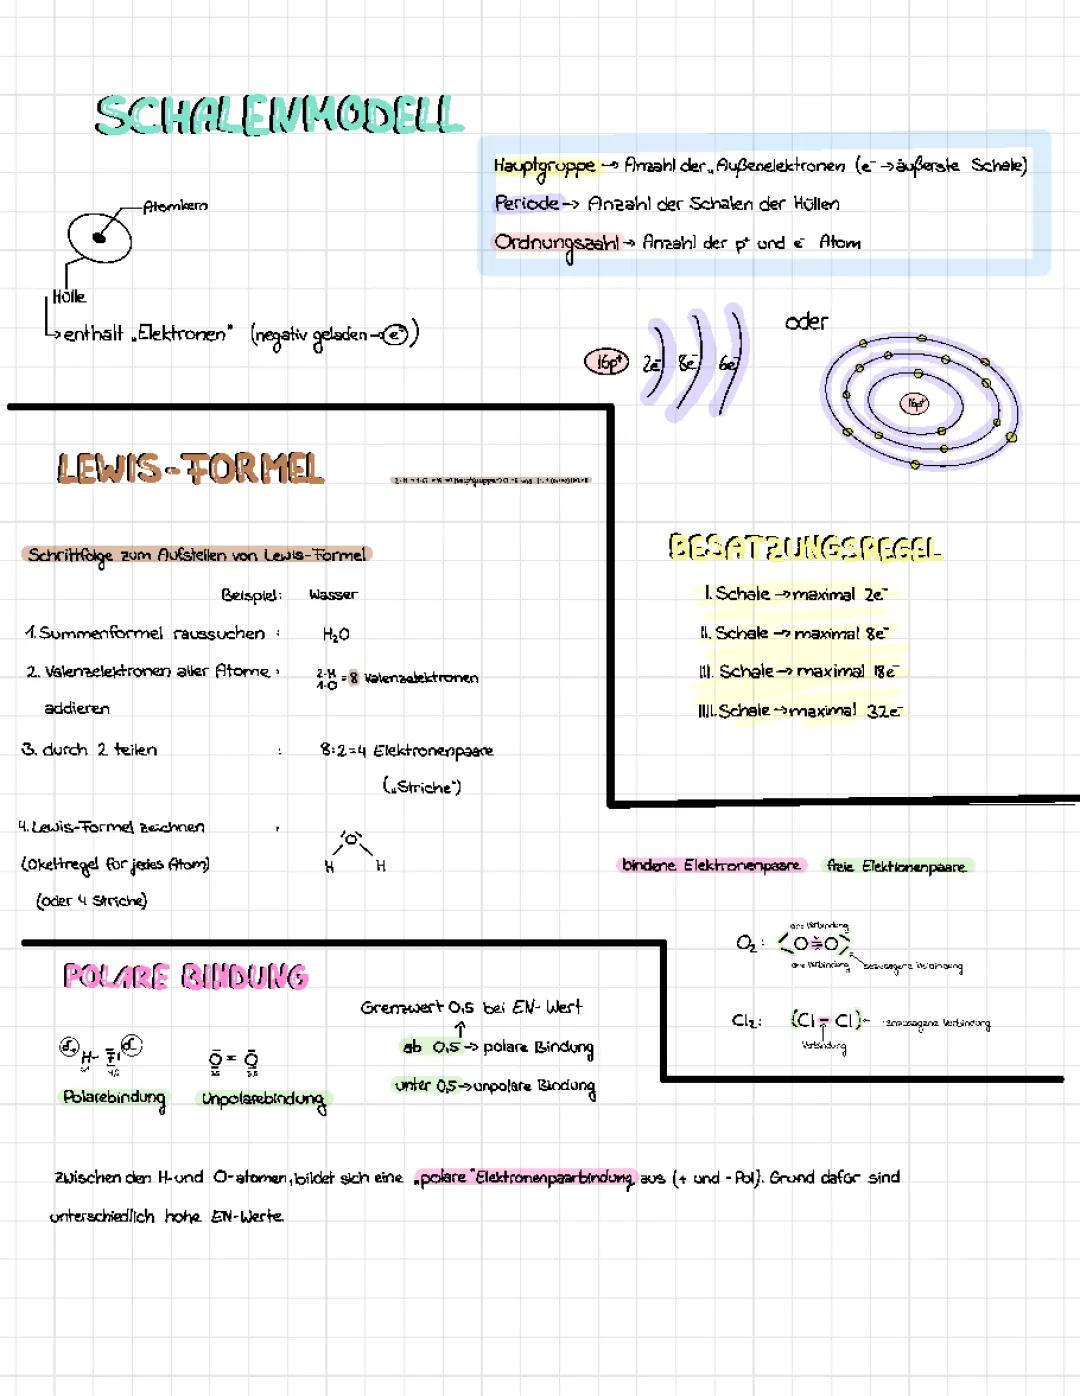 SCHALENMODELL
Hauptgruppe → Anzahl der „Außenelektronen (e⁻ → äußerste Schale)
Periode → Anzahl der Schalen der Hüllen
Ordnungszahl → Anzahl der p⁺ und e⁻ Atom
Atomkern
Hülle
enthält „Elektronen" (negativ geladen → e⁻)
16p⁺ 2e⁻ 8e⁻ 6e⁻
oder
16p⁺
LEWIS-FORMEL
Schrittfolge zum Aufstellen von Lewis-Formel
Beispiel: Wasser
1. Summenformel raussuchen : H₂O
2. Valenzelektronen aller Atome :
addieren
2·H
1·O = 8 Valenzelektronen
3. durch 2 teilen : 8:2=4 Elektronenpaare
(„Striche")
4. Lewis-Formel zeichnen :
(Okettregel für jedes Atom)
(oder 4 Striche)
O
H H
BESATZUNGSREGEL
I. Schale → maximal 2e⁻
II. Schale → maximal 8e⁻
III. Schale → maximal 18e⁻
IIII. Schale → maximal 32e⁻
bindene Elektronenpaare freie Elektronenpaare
O₂: O=O
Cl₂: Cl – Cl
Verbindung
POLARE BINDUNG
Grenzwert 0,5 bei EN-Wert
ab 0,5 → polare Bindung
unter 0,5 → unpolare Bindung
H – F
O = O
Polarebindung Unpolarebindung
zwischen den H-und O-atomen, bildet sich eine „polare" Elektronenpaarbindung aus (+ und - Pol). Grund dafür sind
unterschiedlich hohe EN-Werte.